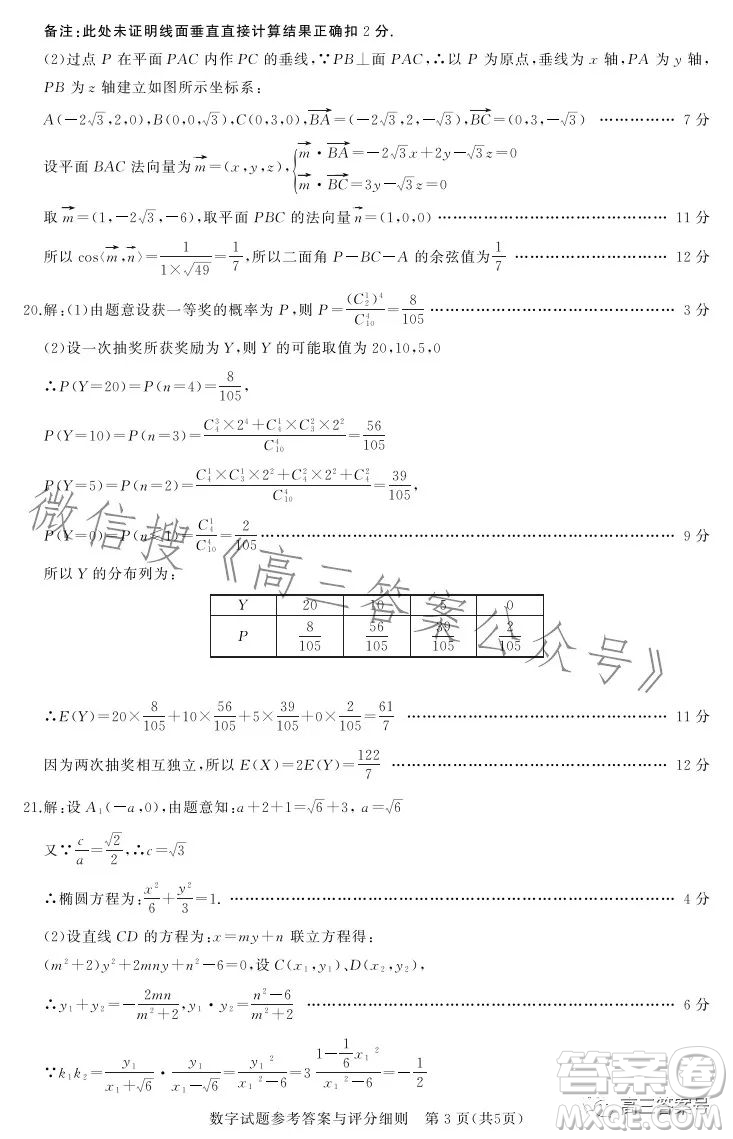 备注:此处未证明线面垂直直接计算结果正确扣 2 分.
(2)过点 P 在平面 PAC 内作 PC 的垂线,∵PB⊥面 PAC,∴以 P 为原点,垂线为 x 轴,PA 为 y 轴,
PB 为 z 轴建立如图所示坐标系:
A(-2√3,2,0),B(0,0,√3),C(0,3,0),BA→=(-2√3,2,-√3),BC→=(0,3,-√3) …………… 7 分
设平面 BAC 法向量为 m→=(x,y,z),{m→·BA→=-2√3x+2y-√3z=0
m→·BC→=3y-√3z=0
取 m→=(1,-2√3,-6),取平面 PBC 的法向量 n→=(1,0,0) …………………………………… 11 分
所以 cos⟨m→,n→⟩=1/(1×√49)=1/7,所以二面角 P-BC-A 的余弦值为 1/7 …………………………… 12 分
20.解:(1)由题意设获一等奖的概率为 P,则 P=(C₂¹)⁴/C₁₀⁴=8/105 …………………………………… 3 分
(2)设一次抽奖所获奖励为 Y,则 Y 的可能取值为 20,10,5,0
∴P(Y=20)=P(n=4)=8/105,
P(Y=10)=P(n=3)=(C₄³×2⁴+C₄¹×C₃²×2²)/C₁₀⁴=56/105
P(Y=5)=P(n=2)=(C₄¹×C₃¹×2²+C₄²×2²+C₄²)/C₁₀⁴=39/105,
P(Y=0)=P(n=1)=C₄¹/C₁₀⁴=2/105 …………………………………… 9 分
所以 Y 的分布列为:
Y 20 10 5 0
P 8/105 56/105 39/105 2/105
∴E(Y)=20×8/105+10×56/105+5×39/105+0×2/105=61/7 …………………………………… 11 分
因为两次抽奖相互独立,所以 E(X)=2E(Y)=122/7 …………………………………… 12 分
21.解:设 A₁(-a,0),由题意知:a+2+1=√6+3, a=√6
又∵c/a=√2/2,∴c=√3
∴椭圆方程为:x²/6+y²/3=1. …………………………………… 4 分
(2)设直线 CD 的方程为:x=my+n 联立方程得:
(m²+2)y²+2mny+n²-6=0,设 C(x₁,y₁)、D(x₂,y₂),
∴y₁+y₂=-2mn/(m²+2),y₁·y₂=(n²-6)/(m²+2) …………………………………… 6 分
∵k₁k₂=y₁/(x₁+√6)·y₁/(x₁-√6)=y₁²/(x₁²-6)=3(1-1/6x₁²)/(x₁²-6)=-1/2
数学试题参考答案与评分细则 第 3 页(共5页)
微信搜《高三答案公众号》
答案圈
高三答案号